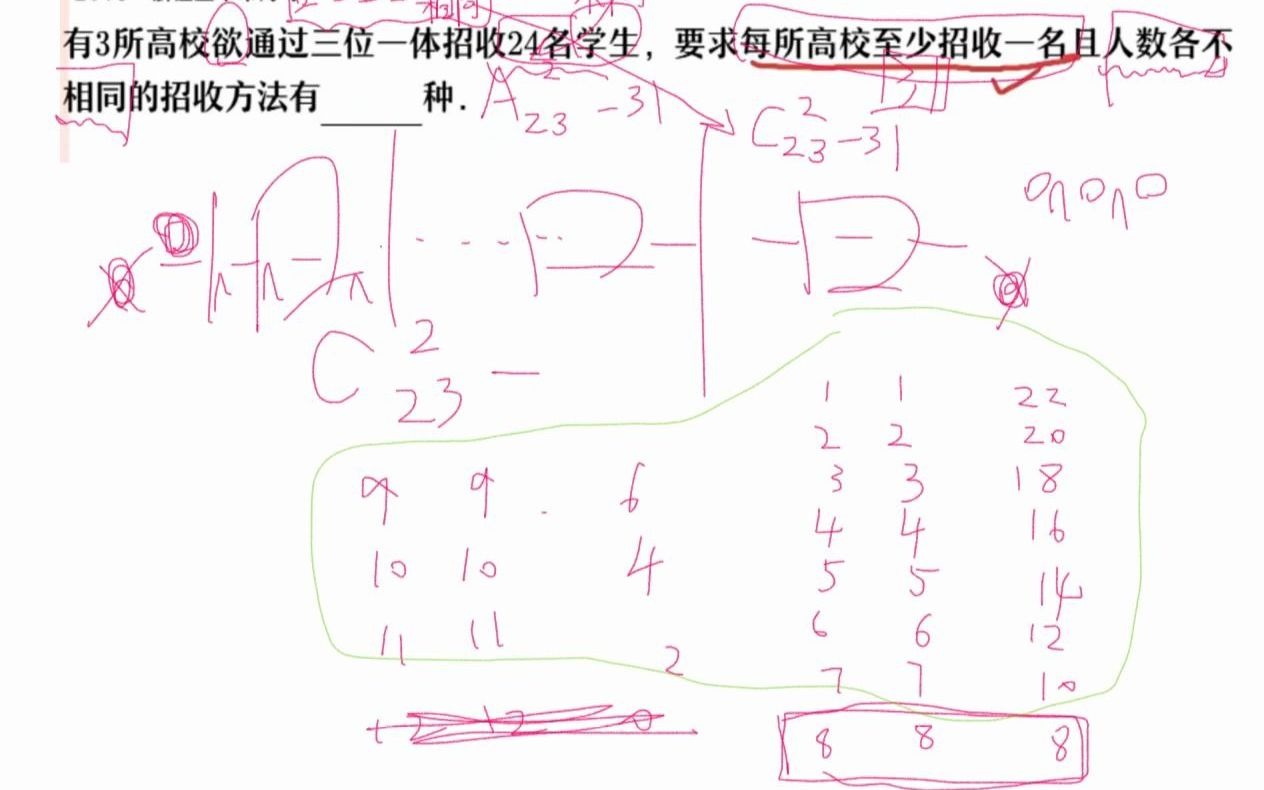 有3所高校欲通过三位一体招收24名学生，要求每所高校至少招收一名且人数各不
相同的招收方法有______种.
A 2 23 - 31
C 2 23 - 31
C 2 23 —
1 1 22
2 2 20
3 3 18
4 4 16
5 5 14
6 6 12
7 7 10
8 8 8
9 9 6
10 10 4
11 11 2